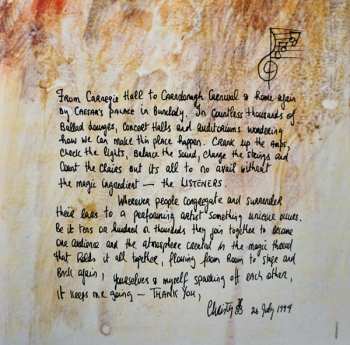 From Carnegie Hall to Carndonagh Carnival & home again
by CAESAR'S palace in Bundoly. In Countless thousands of
Ballad lounges, Concert Halls and auditoriums wondering
how we can make this place happen. Crank up the amps,
check the lights, balance the sound, change the strings and
Count the chairs but its all to no avail without
the magic ingredient — the LISTENERS.
Wherever people congregate and surrender
their ears to a performing artist something unique occurs.
Be it tens or hundred or thousands they join together to become
one audience and the atmosphere created is the magic thread
that holds it all together, flowing from Room to stage and
Back again, yourselves & myself sparking off each other,
it keeps me going — THANK YOU,
Christy 26 July 1994